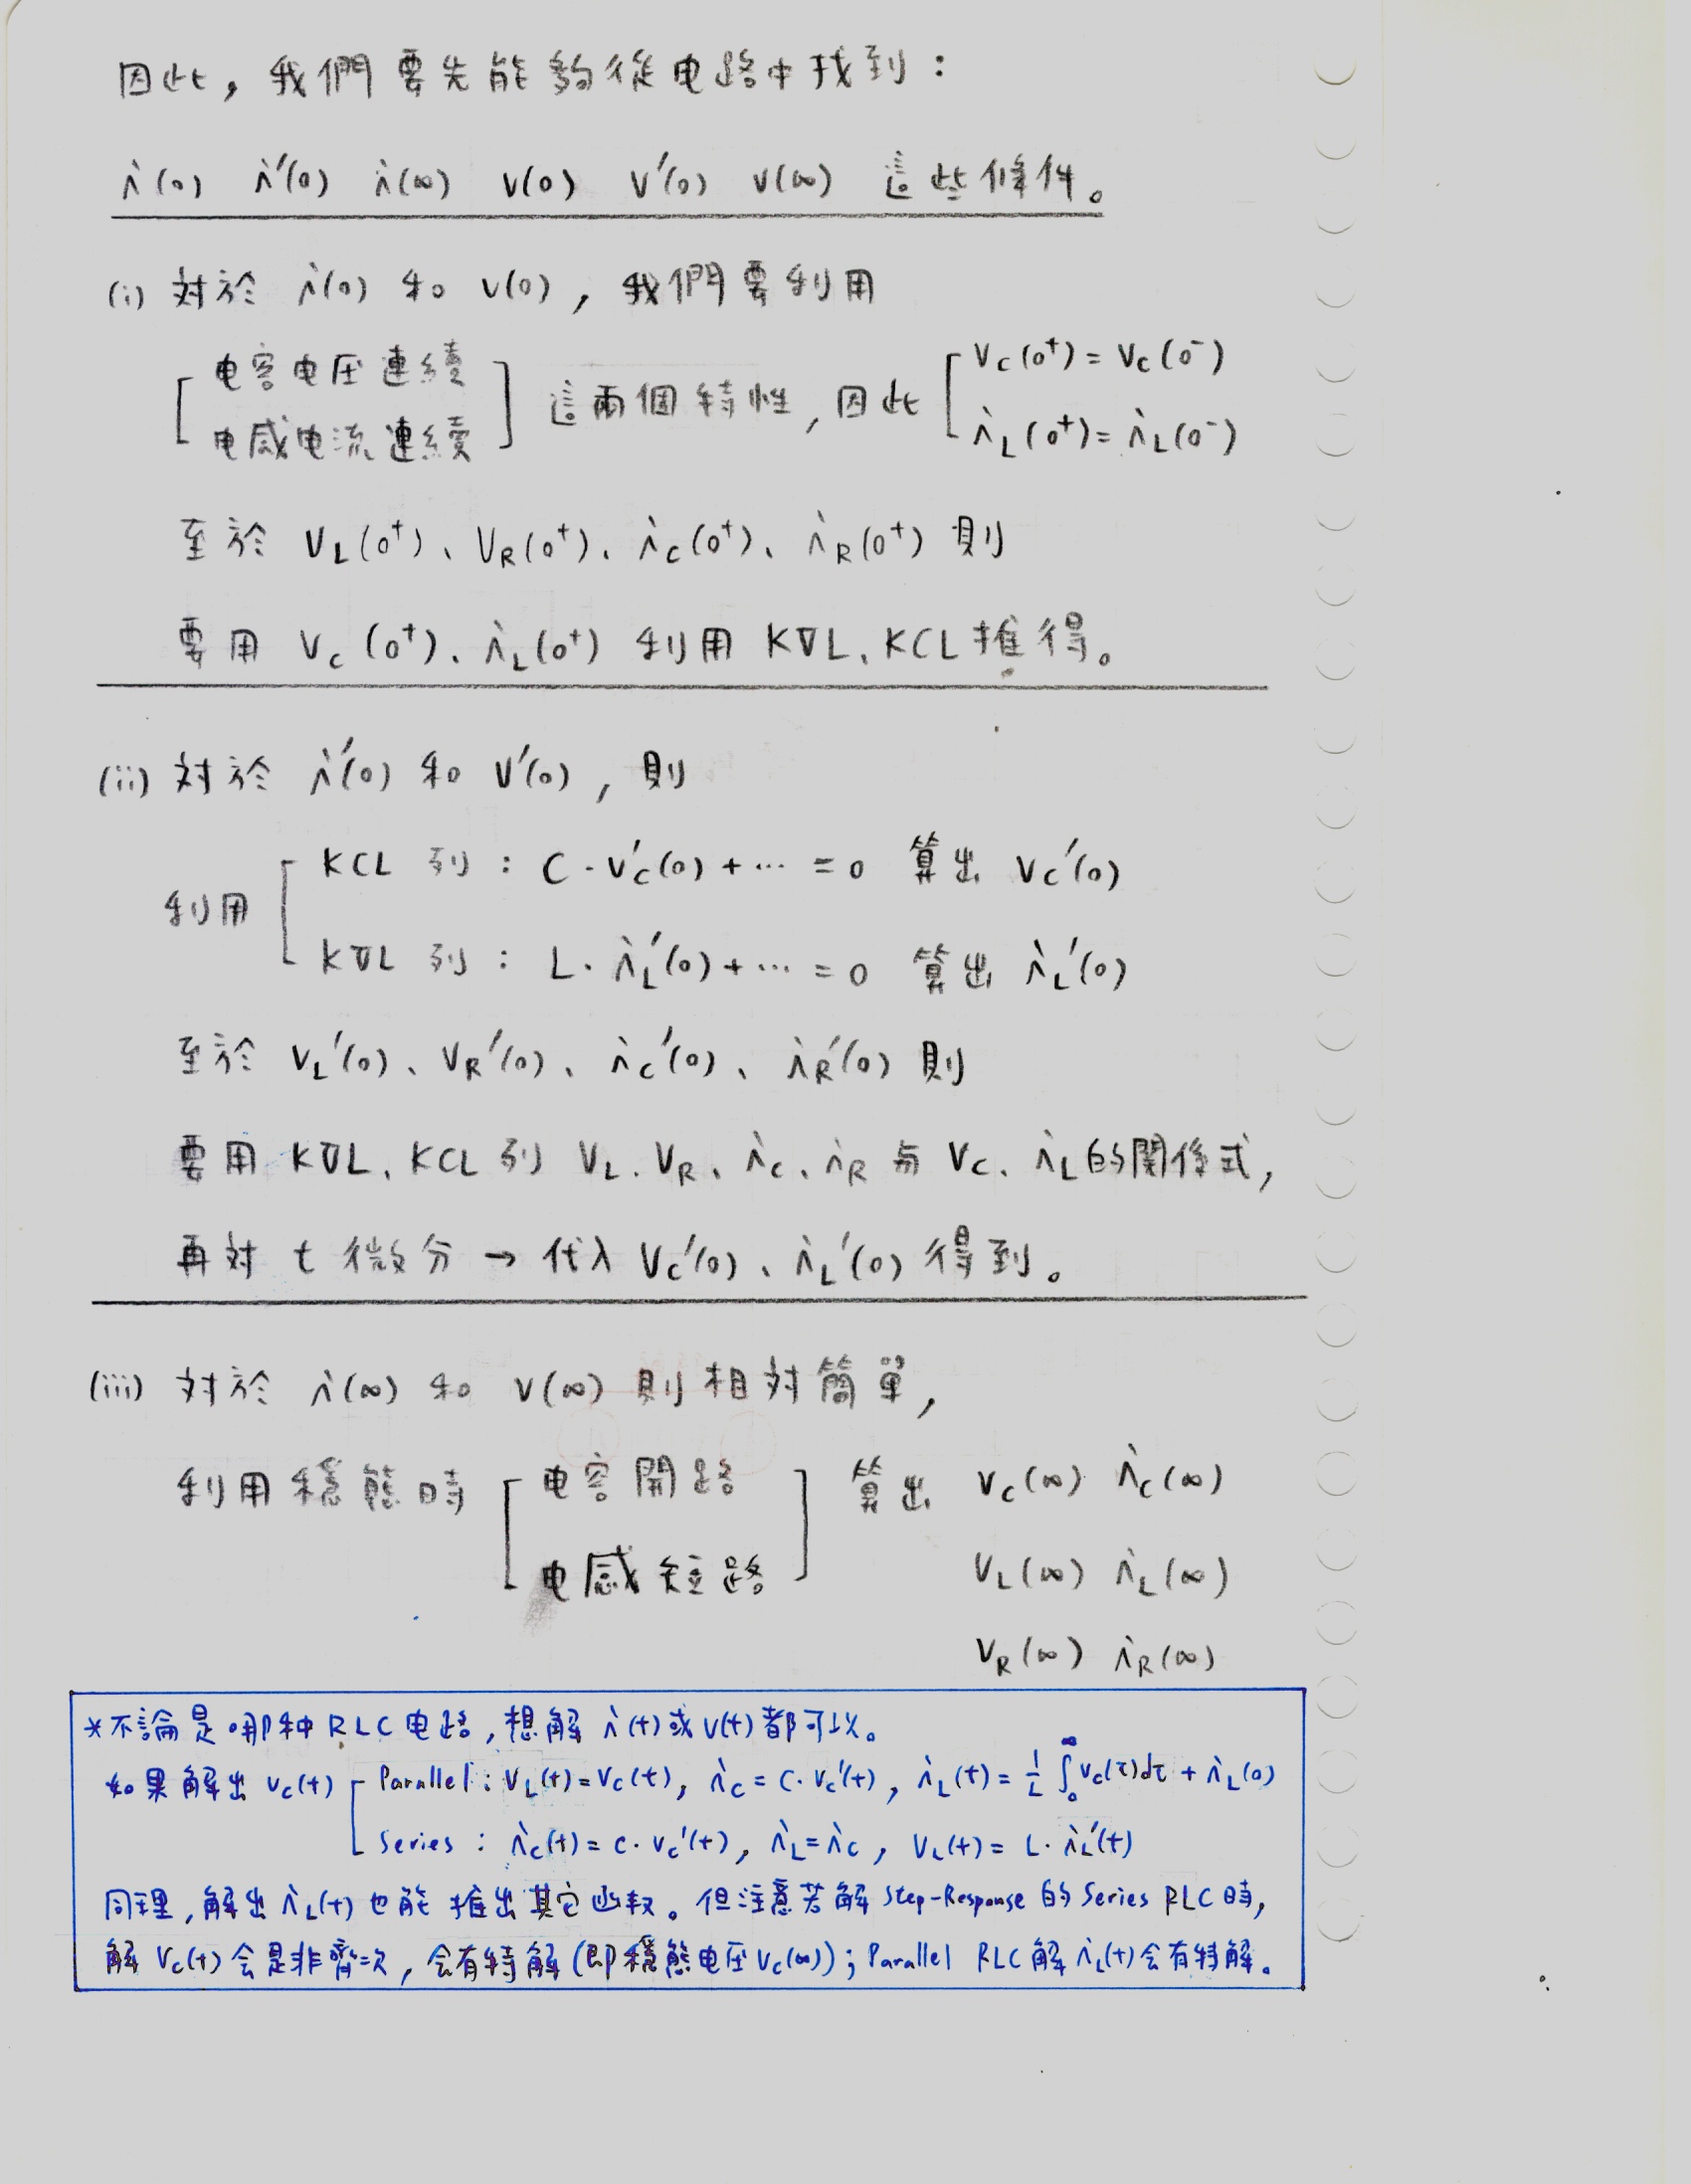 因此，我們要先能夠從电路中找到：
i(0) i'(0) i(∞) v(0) v'(0) v(∞) 這些條件。
(i) 对於 i(0) 和 v(0)，我們要利用
[电容电压連續 电感电流連續] 這兩個特性，因此 [Vc(0⁺)=Vc(0⁻)
iL(0⁺)=iL(0⁻)
至於 VL(0⁺)、VR(0⁺)、ic(0⁺)、iR(0⁺) 則
要用 Vc(0⁺)、iL(0⁺) 利用 KVL、KCL 推得。
(ii) 对於 i'(0) 和 v'(0)，則
利用 [KCL 列：C·v'c(0)+⋯=0 算出 Vc'(0)
KVL 列：L·iL'(0)+⋯=0 算出 iL'(0)
至於 VL'(0)、VR'(0)、ic'(0)、iR'(0) 則
要用 KVL、KCL 列 VL、VR、ic、iR 与 Vc、iL 的關係式，
再对 t 微分 → 代入 Vc'(0)、iL'(0) 得到。
(iii) 对於 i(∞) 和 v(∞) 則相对簡單，
利用穩態時 [电容開路 电感短路] 算出 Vc(∞) ic(∞)
VL(∞) iL(∞)
VR(∞) iR(∞)
*不論是哪种RLC电路，想解 i(t)或v(t)都可以。
如果解出 vc(t) [Parallel：VL(t)=Vc(t)，ic=C·Vc'(t)，iL(t)=1/L ∫₀^∞ vc(τ)dτ + iL(0)
Series：ic(t)=c·vc'(t)，iL=ic，VL(t)=L·iL'(t)
同理，解出 iL(t) 也能推出其它函数。但注意若解 Step-Response 的 Series RLC時，
解 Vc(t) 会是非齊次，会有特解(即穩態电压Vc(∞))；Parallel RLC解 iL(t)会有特解。